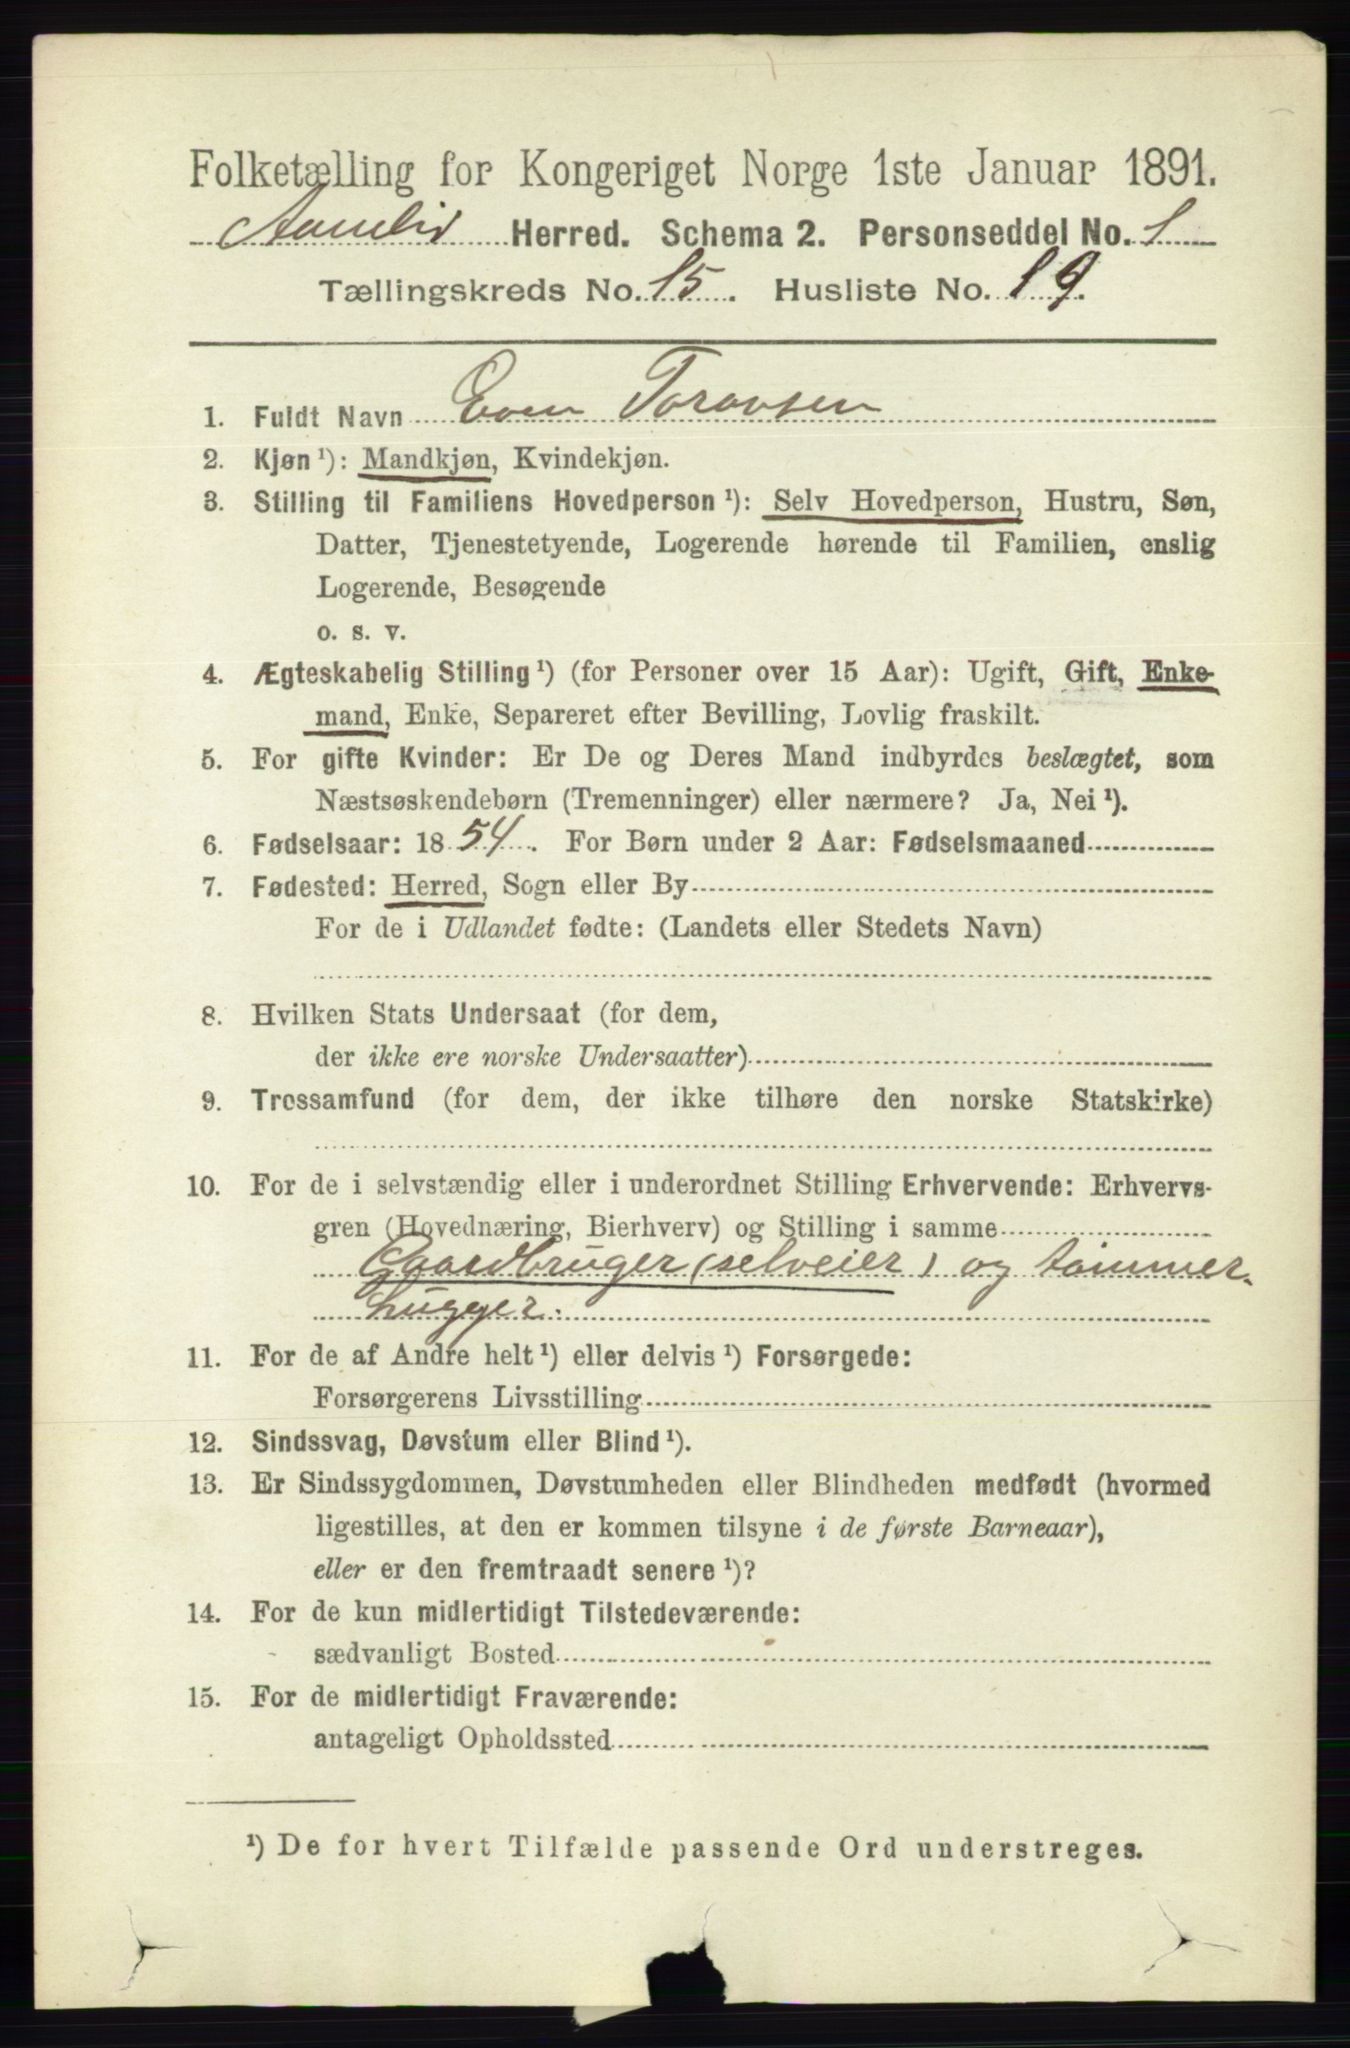 Folketælling for Kongeriget Norge 1ste Januar 1891.
Aamlid Herred. Schema 2. Personseddel No. 1
Tællingskreds No. 15. Husliste No. 19.
1. Fuldt Navn Even Torovsen
2. Kjøn ¹): Mandkjøn, Kvindekjøn.
3. Stilling til Familiens Hovedperson ¹): Selv Hovedperson, Hustru, Søn,
Datter, Tjenestetyende, Logerende hørende til Familien, enslig
Logerende, Besøgende
o. s. v.
4. Ægteskabelig Stilling ¹) (for Personer over 15 Aar): Ugift, Gift, Enke-
mand, Enke, Separeret efter Bevilling, Lovlig fraskilt.
5. For gifte Kvinder: Er De og Deres Mand indbyrdes beslægtet, som
Næstsøskendebørn (Tremenninger) eller nærmere? Ja, Nei ¹).
6. Fødselsaar: 1854. For Børn under 2 Aar: Fødselsmaaned
7. Fødested: Herred, Sogn eller By
For de i Udlandet fødte: (Landets eller Stedets Navn)
8. Hvilken Stats Undersaat (for dem,
der ikke ere norske Undersaatter)
9. Trossamfund (for dem, der ikke tilhøre den norske Statskirke)
10. For de i selvstændig eller i underordnet Stilling Erhvervende: Erhvervs-
gren (Hovednæring, Bierhverv) og Stilling i samme
Gaardbruger (selveier) og tømmer-
hugger.
11. For de af Andre helt ¹) eller delvis ¹) Forsørgede:
Forsørgerens Livsstilling
12. Sindssvag, Døvstum eller Blind ¹).
13. Er Sindssygdommen, Døvstumheden eller Blindheden medfødt (hvormed
ligestilles, at den er kommen tilsyne i de første Barneaar),
eller er den fremtraadt senere ¹)?
14. For de kun midlertidigt Tilstedeværende:
sædvanligt Bosted
15. For de midlertidigt Fraværende:
antageligt Opholdssted
¹) De for hvert Tilfælde passende Ord understreges.